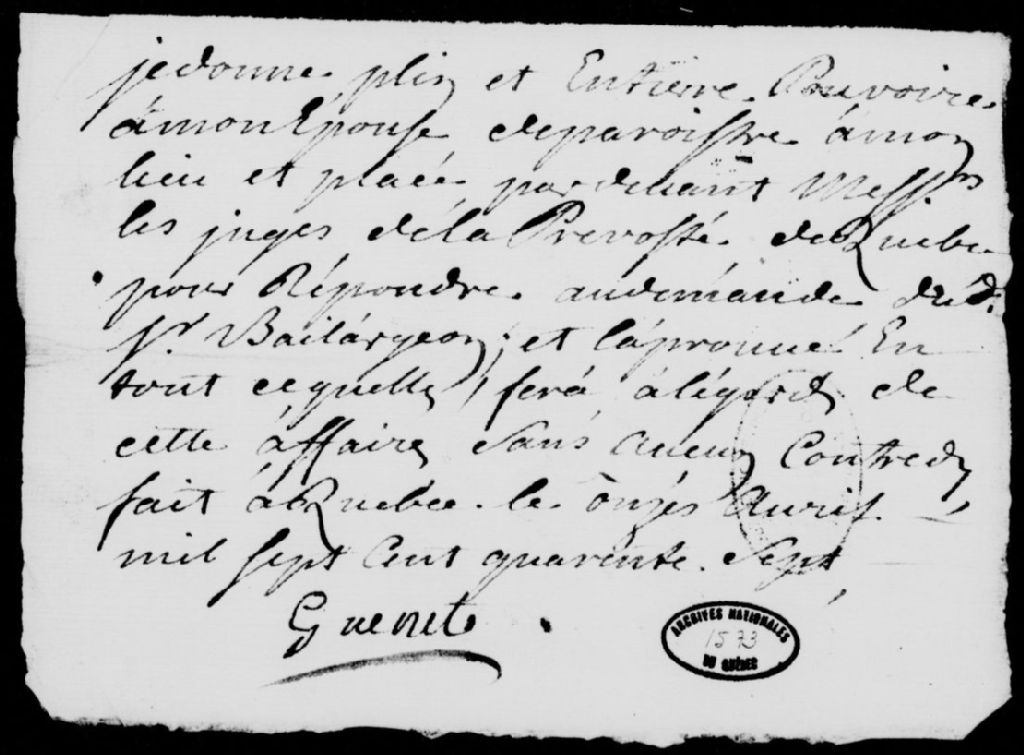 je donne plin et Entierre Pouvoire
à mon Epouse deparoistre à mon
lieu et place par devant Mess.rs
les juges de la Prevosté de Quebec
pour Répondre au demande du d.
Sr. Bailargeon; et l'aprouvé En
tout ce quelle fera à légard de
cette àffaire sans aucun Contredy
fait à Quebec le onzes Avril
mil sept cent quarente sept
Guenet
ARCHIVES NATIONALES
1573
DU QUÉBEC